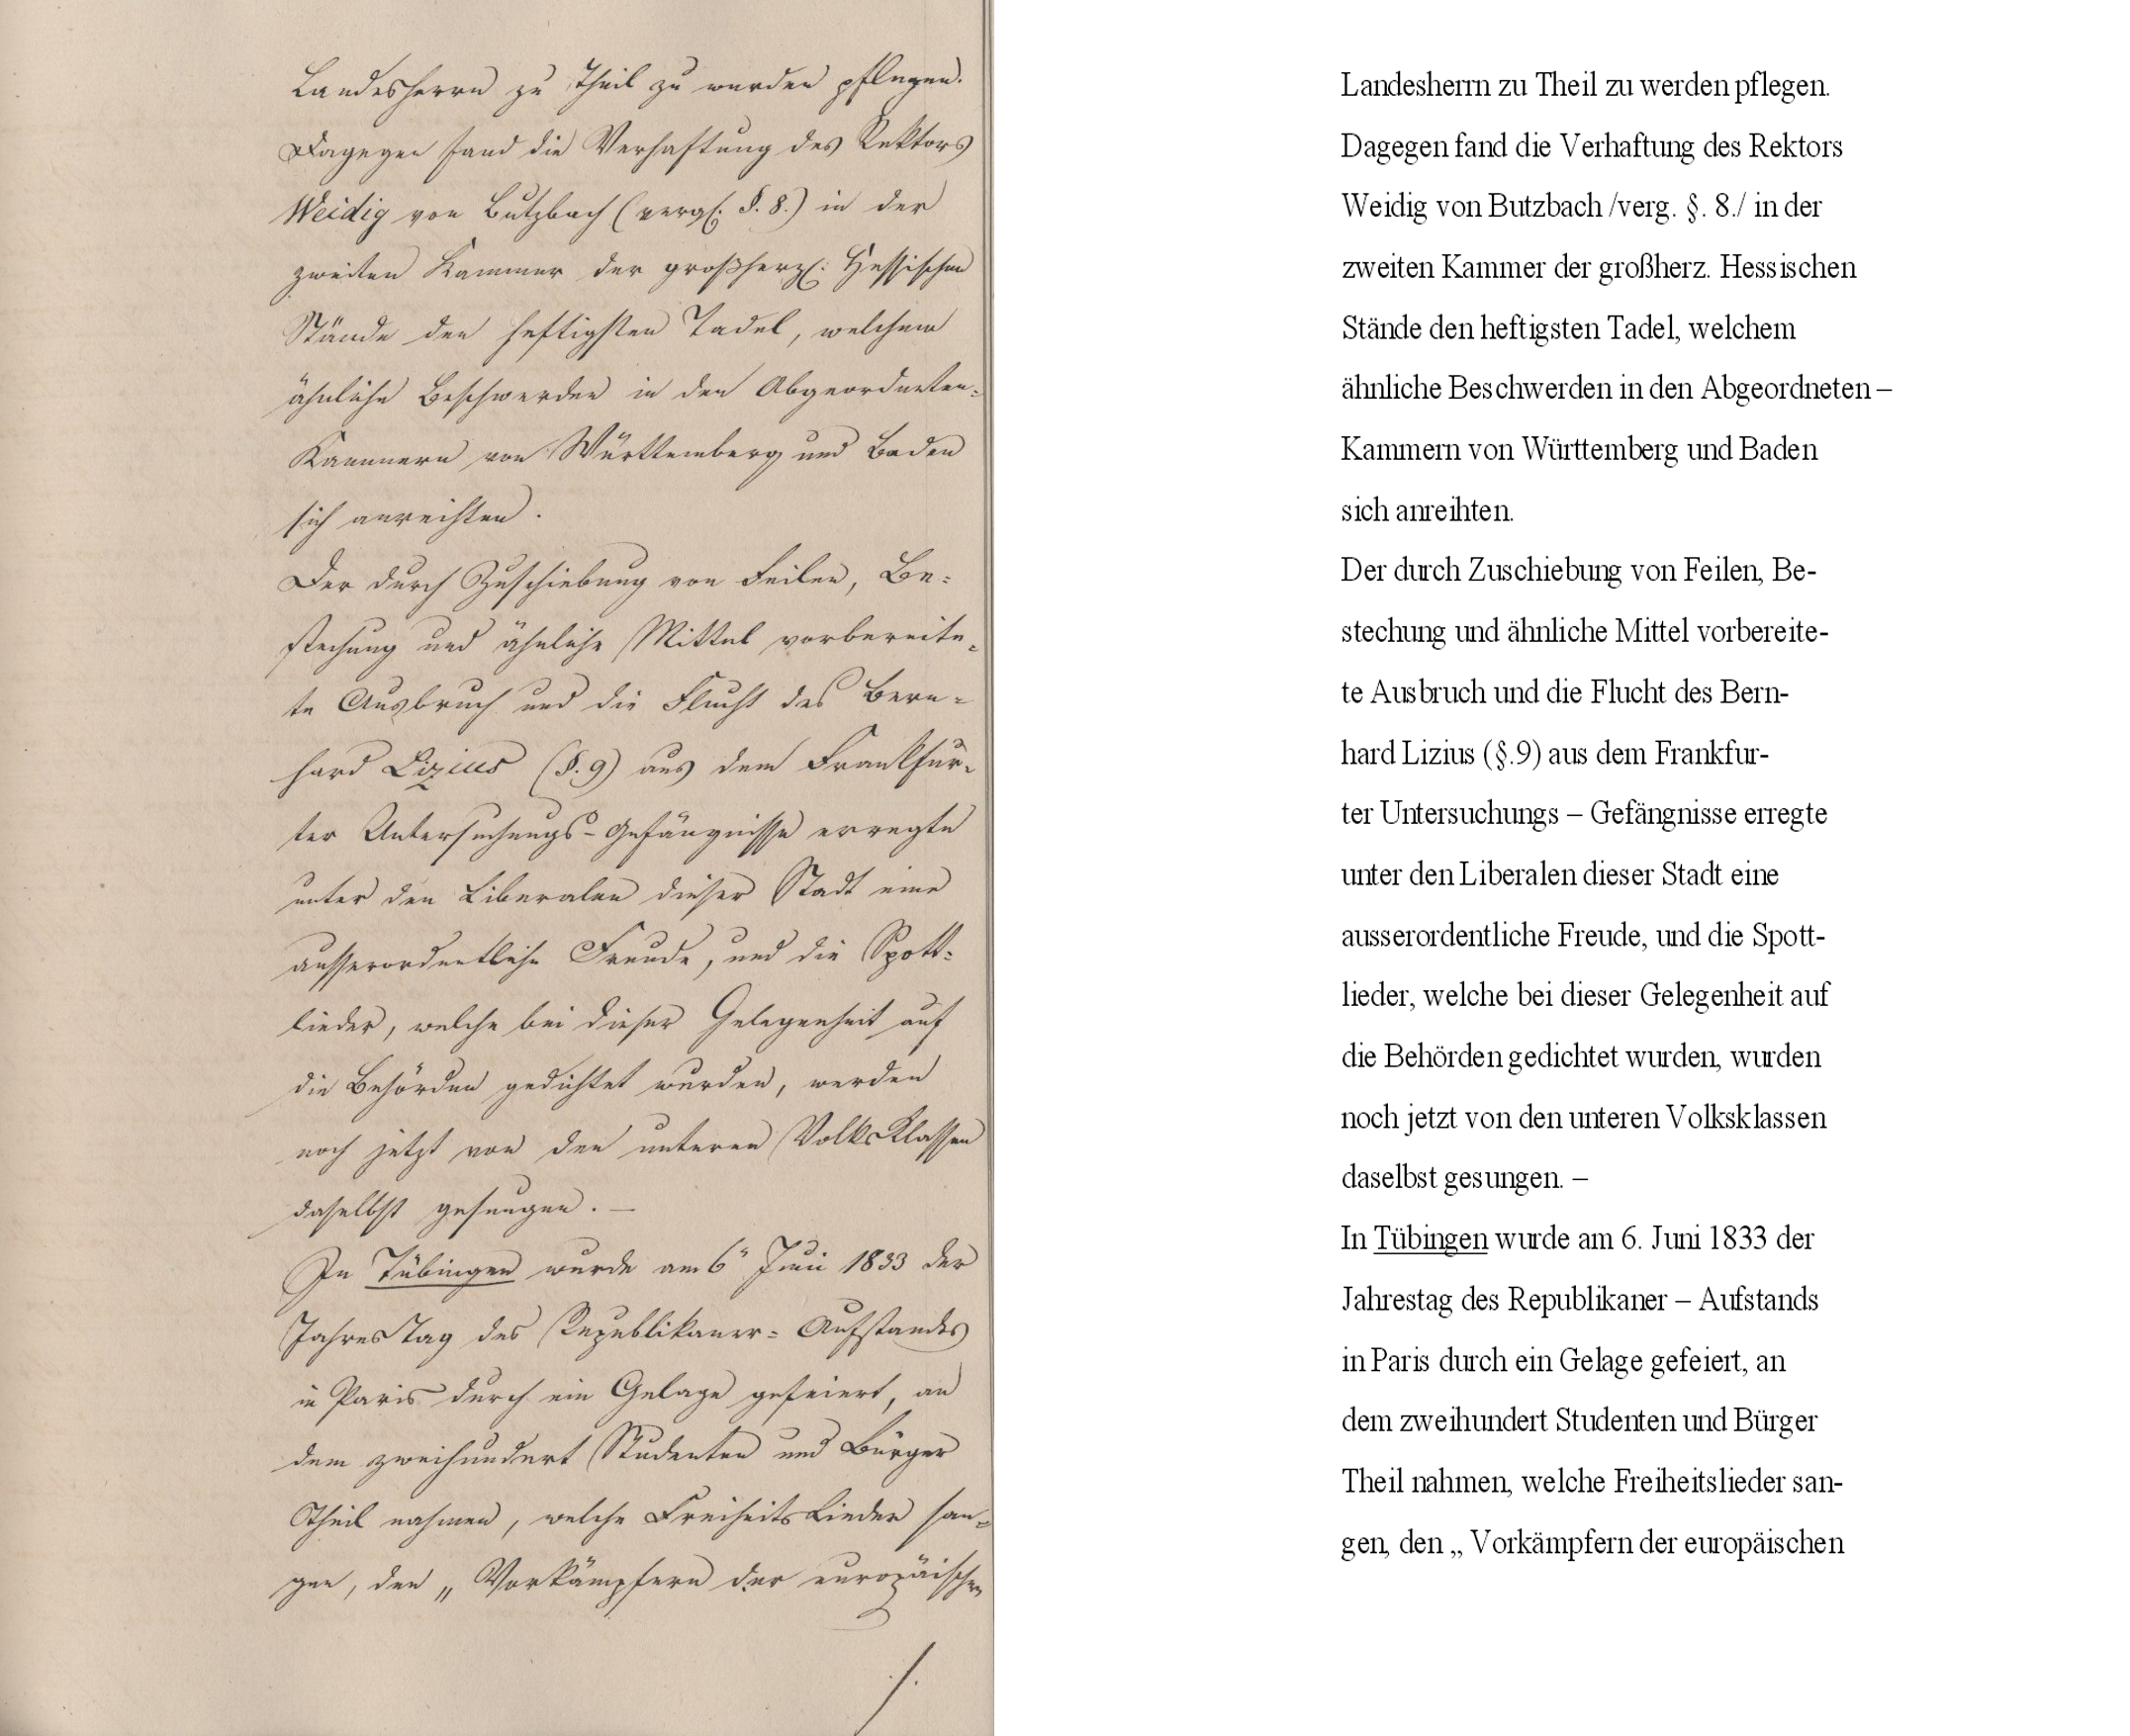 Landesherrn zu Theil zu werden pflegen.
Dagegen fand die Verhaftung des Rektors
Weidig von Butzbach (vergl. §. 8.) in der
zweiten Kammer der großherzl: Hessischen
Stände den heftigsten Tadel, welchem
ähnliche Beschwerden in den Abgeordneten=
Kammern von Württemberg und Baden
sich anreihten.
Der durch Zuschiebung von Feilen, Be=
stechung und ähnliche Mittel vorbereite=
te Ausbruch und die Flucht des Bern=
hard Lizius (§. 9) aus dem Frankfur=
ter Untersuchungs-Gefängnisse erregte
unter den Liberalen dieser Stadt eine
ausserordentliche Freude, und die Spott=
lieder, welche bei dieser Gelegenheit auf
die Behörden gedichtet wurden, werden
noch jetzt von den unteren VolksKlassen
daselbst gesungen. —
In Tübingen wurde am 6" Juni 1833 der
JahresTag des Republikaner= Aufstandes
in Paris durch ein Gelage gefeiert, an
dem zweihundert Studenten und Bürger
Theil nahmen, welche FreiheitsLieder san=
gen, den „ Vorkämpfern der europäischen
/.
Landesherrn zu Theil zu werden pflegen.
Dagegen fand die Verhaftung des Rektors
Weidig von Butzbach /verg. §. 8./ in der
zweiten Kammer der großherz. Hessischen
Stände den heftigsten Tadel, welchem
ähnliche Beschwerden in den Abgeordneten –
Kammern von Württemberg und Baden
sich anreihten.
Der durch Zuschiebung von Feilen, Be-
stechung und ähnliche Mittel vorbereite-
te Ausbruch und die Flucht des Bern-
hard Lizius (§.9) aus dem Frankfur-
ter Untersuchungs – Gefängnisse erregte
unter den Liberalen dieser Stadt eine
ausserordentliche Freude, und die Spott-
lieder, welche bei dieser Gelegenheit auf
die Behörden gedichtet wurden, wurden
noch jetzt von den unteren Volksklassen
daselbst gesungen. –
In Tübingen wurde am 6. Juni 1833 der
Jahrestag des Republikaner – Aufstands
in Paris durch ein Gelage gefeiert, an
dem zweihundert Studenten und Bürger
Theil nahmen, welche Freiheitslieder san-
gen, den „ Vorkämpfern der europäischen